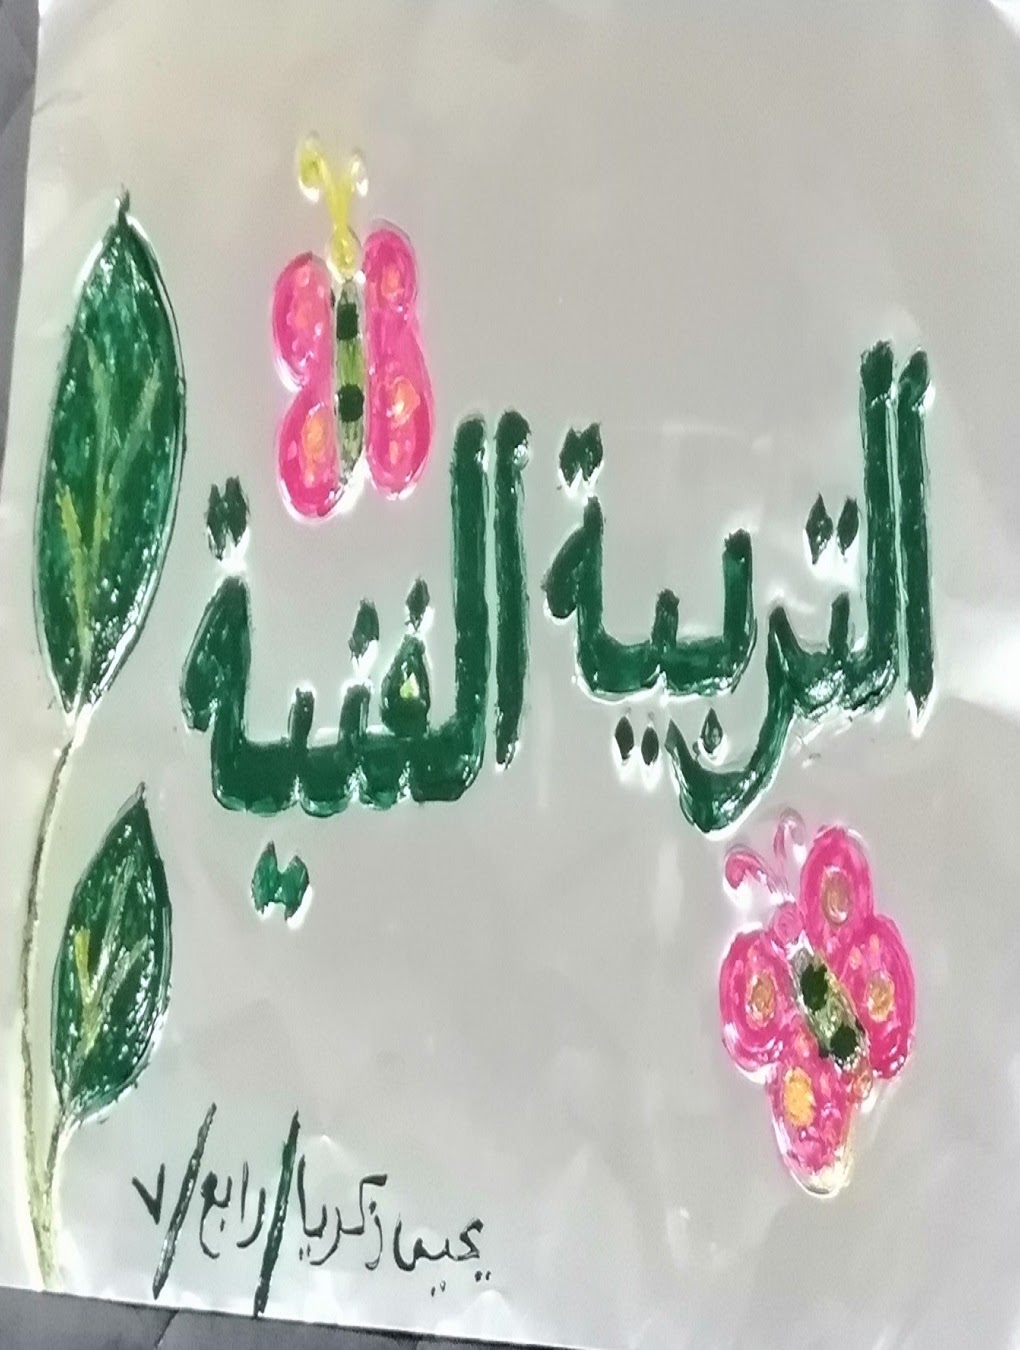 التربية الفنية
يحيى زكريا/رابع/٧